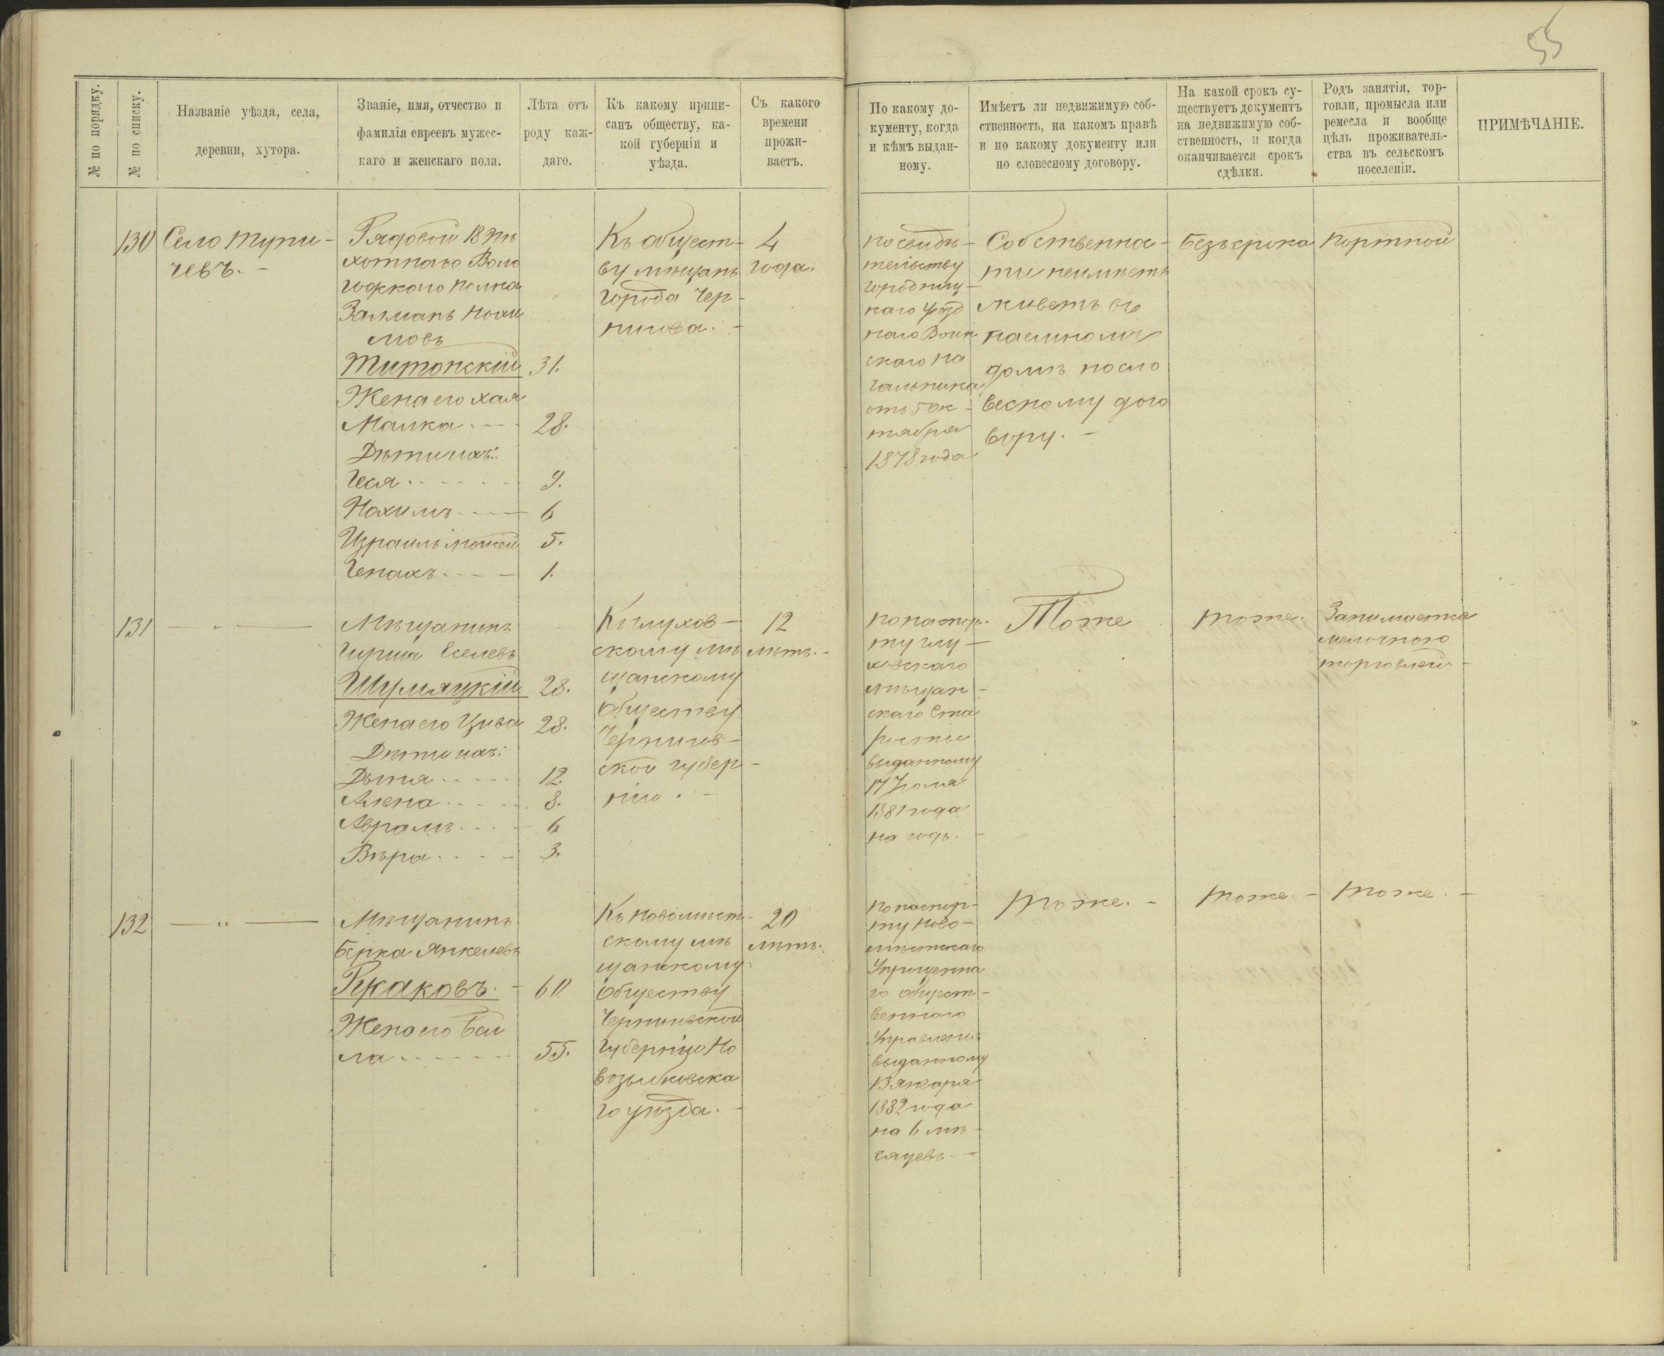 55
№ по порядку.
№ по списку.
Названіе уѣзда, села,
деревни, хутора.
Званіе, имя, отчество и
фамилія евреевъ мужес-
каго и женскаго пола.
Лѣта отъ
роду каж-
даго.
Къ какому припи-
санъ обществу, ка-
кой губерніи и
уѣзда.
Съ какого
времени
прожи-
ваетъ.
По какому до-
кументу, когда
и кѣмъ выдан-
ному.
Имѣетъ ли недвижимую соб-
ственность, на какомъ правѣ
и по какому документу или
по словесному договору.
На какой срокъ су-
ществуетъ документъ
на недвижимую соб-
ственность, и когда
оканчивается срокъ
сдѣлки.
Родъ занятія, тор-
говли, промысла или
ремесла и вообще
цѣль проживатель-
ства въ сельскомъ
поселеніи.
ПРИМѢЧАНІЕ.
130
Село Тупи-
чевъ. -
Рядовой 18 Пѣ
хотнаго Воло
годскаго полка
Залманъ Нохи
мовъ
Титонскій 31.
Жена его Хая
Малка 28.
Дѣти ихъ:
Геся 9.
Нохимъ 6
Израиль Мошей 5.
Генахъ 1.
Къ общест-
ву мѣщанъ
города Чер-
нигова. -
4
года.
по свидѣ-
тельству
Городницу-
наго Уѣзд
наго Воин
скаго На
чальника
отъ 5 Ок-
тября
1878 года
Собственнос-
ти неимѣетъ
живетъ въ
наемномъ
домѣ посло
весному дого
вору. -
Безъ срока
Портной
131
- " -
Мѣщанинъ
Гирша Еселевъ
Шумяцкій 28.
Жена его Цива 28.
Дѣти ихъ:
Дыня 12.
Алена 8.
Абрамъ 6
Вѣра 3.
Къ глухов-
скому мѣ
щанскому
обществу
Чернигов-
ской губер-
ніи. -
12
лѣтъ. -
по паспор-
ту глу-
ховскаго
мѣщан-
скаго Ста
росты
выданному
17 Іюля
1881 года
на годъ. -
Тоже
тоже.
Занимается
мелочною
торговлей -
132
- " -
Мѣщанинъ
Берка Янкелевъ
Ржаковъ. - 60
Жена его Бей
ла 55.
Къ новомѣст-
скому мѣ
щанскому
обществу
Черниговской
Губерніи Но
возыбковска
го уѣзда. -
20
лѣтъ.
по паспор-
ту Ново-
мѣстскаго
Упрощенна
го общест-
веннаго
Управленія
выданному
13 Января
1882 года
на 6 мѣ-
сяцевъ. -
тоже. -
тоже. -
тоже. -